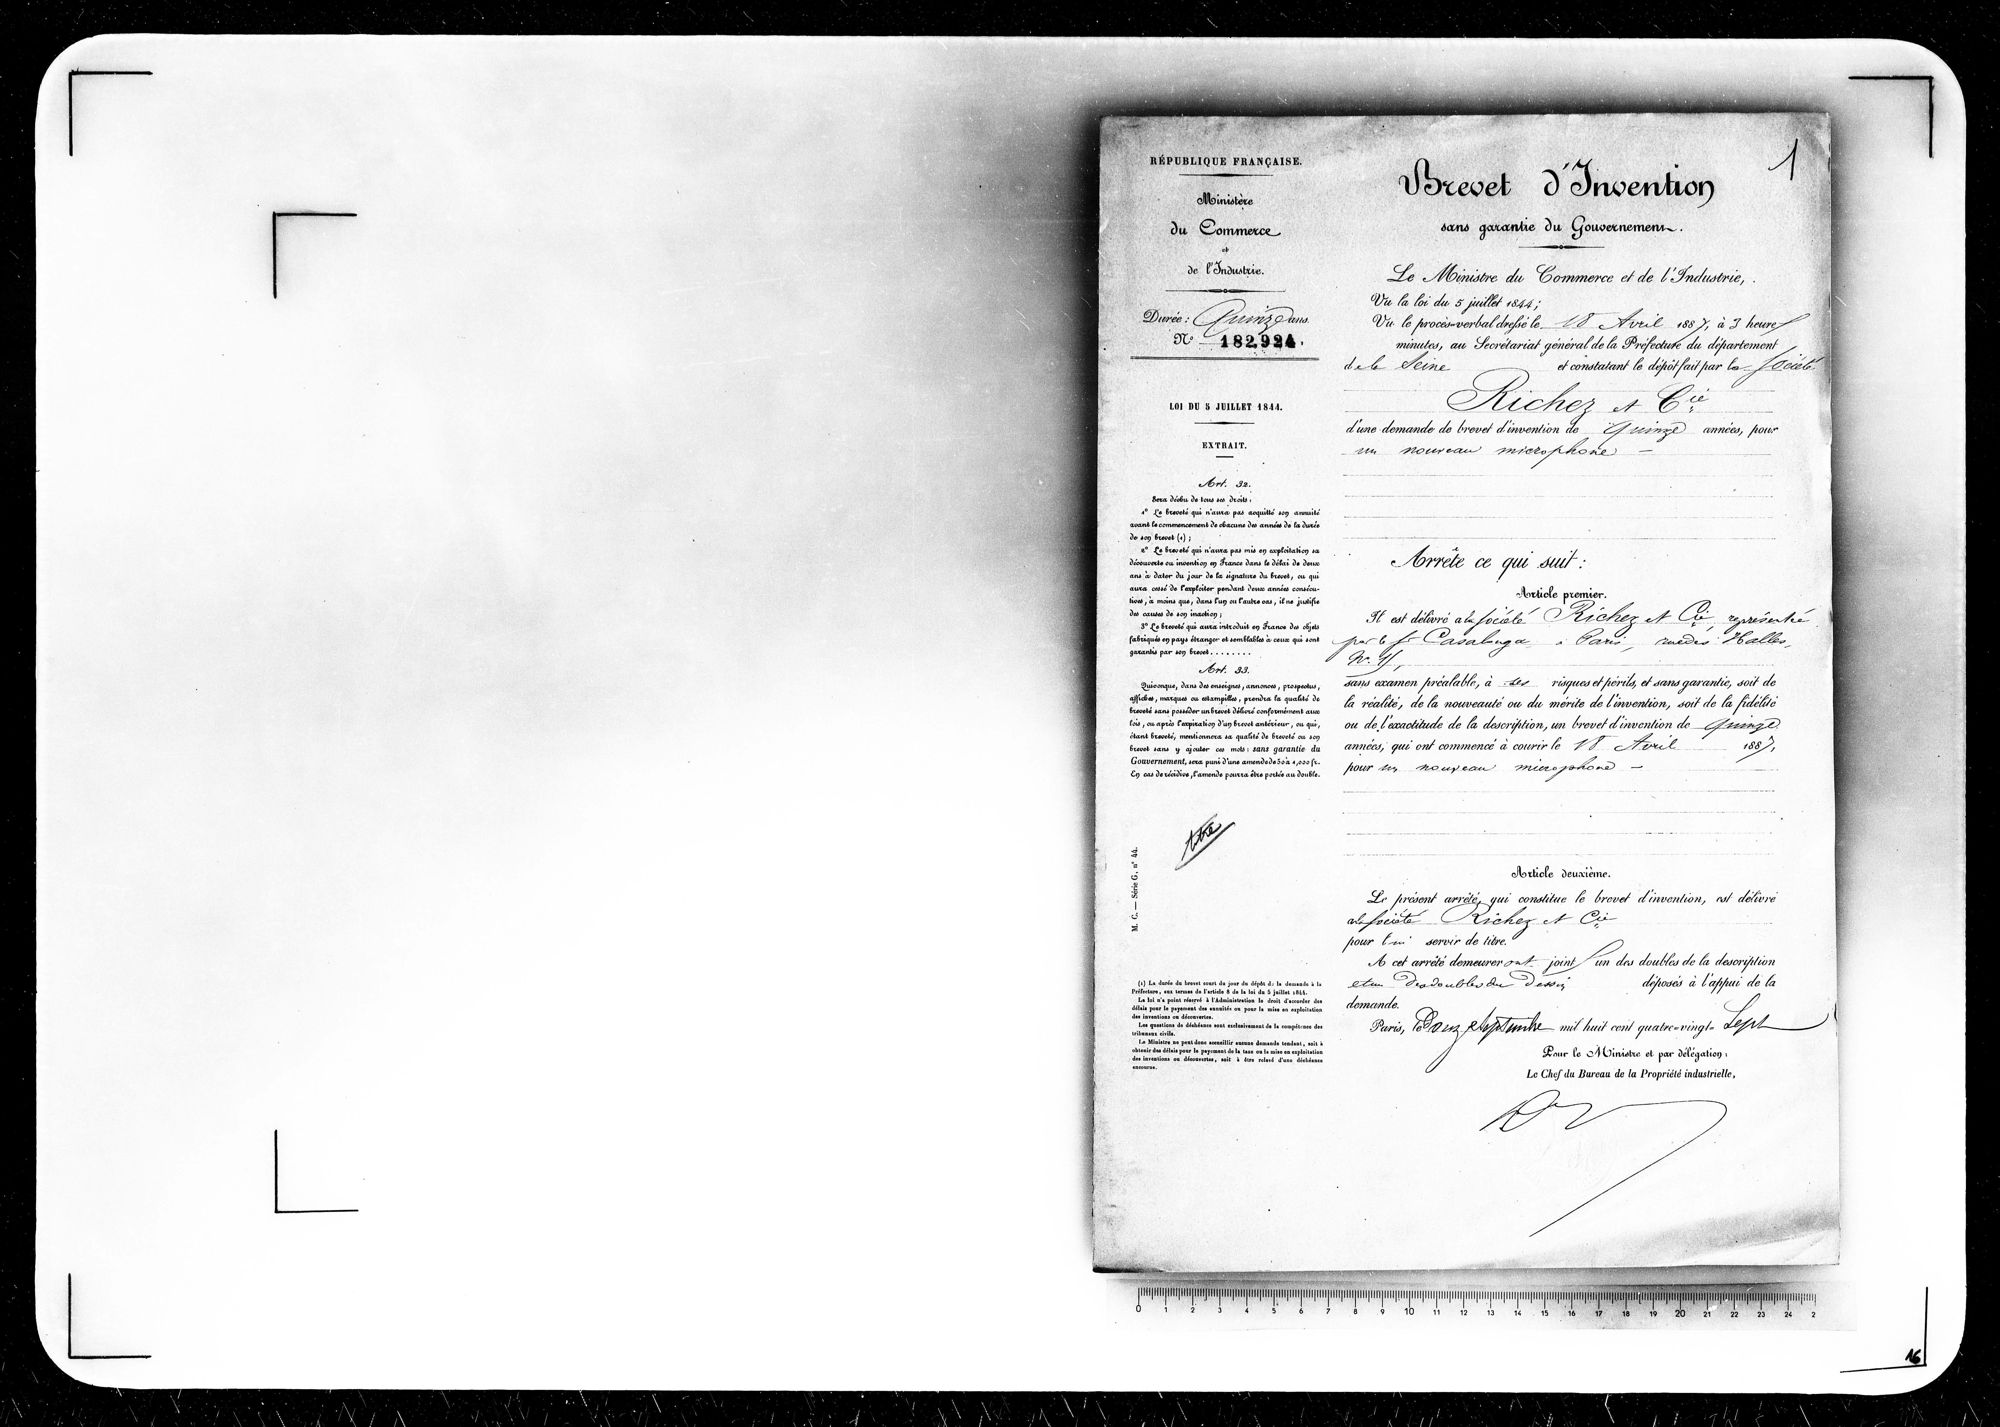 RÉPUBLIQUE FRANÇAISE.
Ministère
du Commerce
et
de l'Industrie.
Durée : Quinze ans.
N° 182,924.
LOI DU 5 JUILLET 1844.
EXTRAIT.
Art. 32.
Sera déchu de tous ses droits :
1° Le breveté qui n'aura pas acquitté son annuité
avant le commencement de chacune des années de la durée
de son brevet (1) ;
2° Le breveté qui n'aura pas mis en exploitation sa
découverte ou invention en France dans le délai de deux
ans à dater du jour de la signature du brevet, ou qui
aura cessé de l'exploiter pendant deux années consécu-
tives, à moins que, dans l'un ou l'autre cas, il ne justifie
des causes de son inaction ;
3° Le breveté qui aura introduit en France des objets
fabriqués en pays étranger et semblables à ceux qui sont
garantis par son brevet........
Art. 33.
Quiconque, dans des enseignes, annonces, prospectus,
affiches, marques ou estampilles, prendra la qualité de
breveté sans posséder un brevet délivré conformément aux
lois, ou après l'expiration d'un brevet antérieur, ou qui,
étant breveté, mentionnera sa qualité de breveté ou son
brevet sans y ajouter ces mots : sans garantie du
Gouvernement, sera puni d'une amende de 50 à 1,000 fr.
En cas de récidive, l'amende pourra être portée au double.
M. C. — Série G, n° 44.
(1) La durée du brevet court du jour du dépôt de la demande à la
Préfecture, aux termes de l'article 8 de la loi du 5 juillet 1844.
La loi n'a point réservé à l'Administration le droit d'accorder des
délais pour le payement des annuités ou pour la mise en exploitation
des inventions ou découvertes.
Les questions de déchéances sont exclusivement de la compétence des
tribunaux civils.
Le Ministre ne peut donc accueillir aucune demande tendant, soit à
obtenir des délais pour le payement de la taxe ou la mise en exploitation
des inventions ou découvertes, soit à être relevé d'une déchéance
encourue.
1
Brevet d'Invention
sans garantie du Gouvernement.
Le Ministre du Commerce et de l'Industrie,
Vu la loi du 5 juillet 1844 ;
Vu le procès-verbal dressé le 18 Avril 1887, à 3 heures
minutes, au Secrétariat général de la Préfecture du département
de la Seine et constatant le dépôt fait par la Société
Richez et Cie
d'une demande de brevet d'invention de quinze années, pour
un nouveau microphone —
Arrête ce qui suit :
Article premier.
Il est délivré à la Société Richez et Cie, représentée
par le Sr Casalonga à Paris, rue des Halles,
N° 15,
sans examen préalable, à ses risques et périls, et sans garantie, soit de
la réalité, de la nouveauté ou du mérite de l'invention, soit de la fidélité
ou de l'exactitude de la description, un brevet d'invention de quinze
années, qui ont commencé à courir le 18 Avril 1887,
pour un nouveau microphone —
Article deuxième.
Le présent arrêté, qui constitue le brevet d'invention, est délivré
à la Société Richez et Cie
pour lui servir de titre.
A cet arrêté demeureront joints un des doubles de la description
et un des doubles du dessin déposés à l'appui de la
demande.
Paris, le Douze Septembre mil huit cent quatre-vingt- Sept
Pour le Ministre et par délégation :
Le Chef du Bureau de la Propriété industrielle,
0 1 2 3 4 5 6 7 8 9 10 11 12 13 14 15 16 17 18 19 20 21 22 23 24 2
16